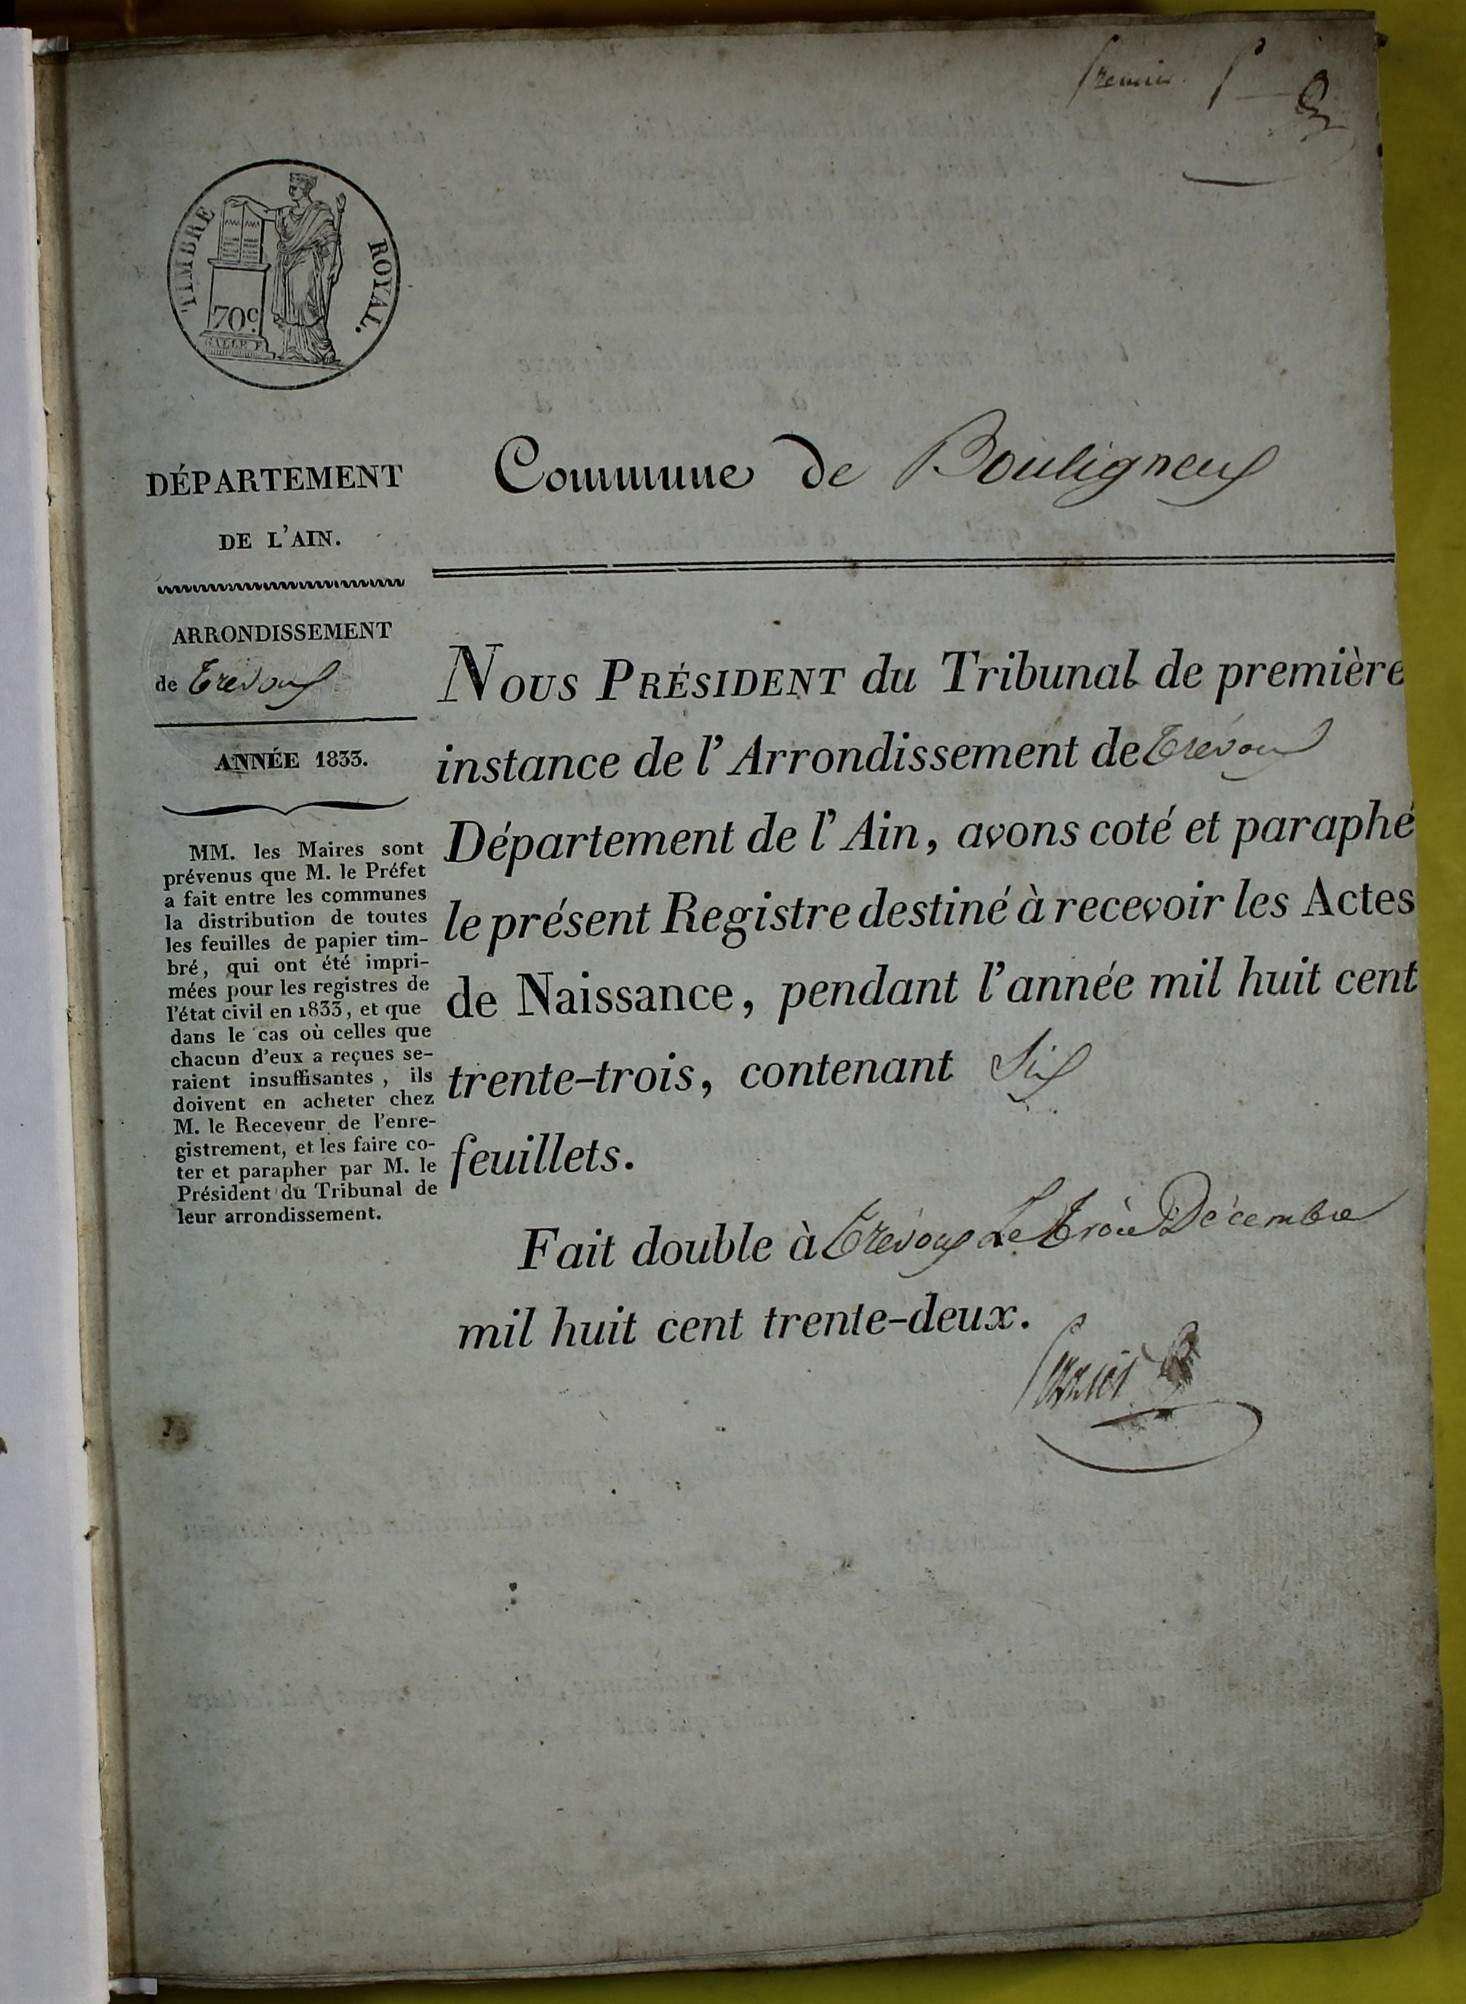 Premier
TIMBRE ROYAL.
70c.
DÉPARTEMENT
DE L'AIN.
ARRONDISSEMENT
de Trévoux
ANNÉE 1833.
MM. les Maires sont
prévenus que M. le Préfet
a fait entre les communes
la distribution de toutes
les feuilles de papier tim-
bré, qui ont été impri-
mées pour les registres de
l'état civil en 1833, et que
dans le cas où celles que
chacun d'eux a reçues se-
raient insuffisantes, ils
doivent en acheter chez
M. le Receveur de l'enre-
gistrement, et les faire co-
ter et parapher par M. le
Président du Tribunal de
leur arrondissement.
Commune de Bouligneux
NOUS PRÉSIDENT du Tribunal de première
instance de l'Arrondissement de Trévoux
Département de l'Ain, avons coté et paraphé
le présent Registre destiné à recevoir les Actes
de Naissance, pendant l'année mil huit cent
trente-trois, contenant Six
feuillets.
Fait double à Trévoux Le Trois Décembre
mil huit cent trente-deux.